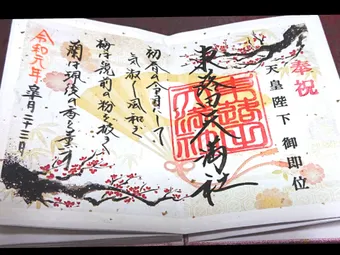 奉祝
天皇陛下 御即位
東蕗田天満社
初春の令月にして
気淑く風和ぎ
梅は鏡前の粉を披き
蘭は珮後の香を薫す
令和元年皐月二十三日